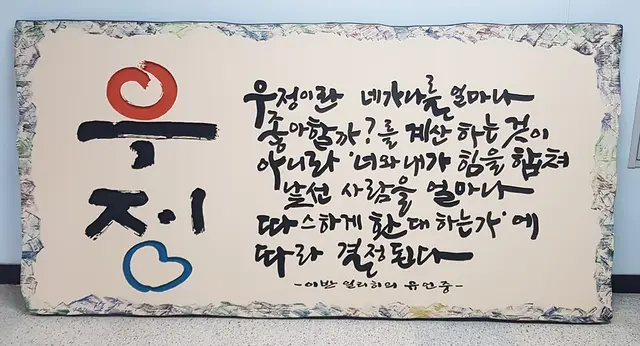 우정
우정이란 네가 나를 얼마나
좋아할까?를 계산하는 것이
아니라 '너와 내가 힘을 합쳐
낯선 사람을 얼마나
따스하게 환대하는가'에
따라 결정된다
-이반 일리히의 유언중-